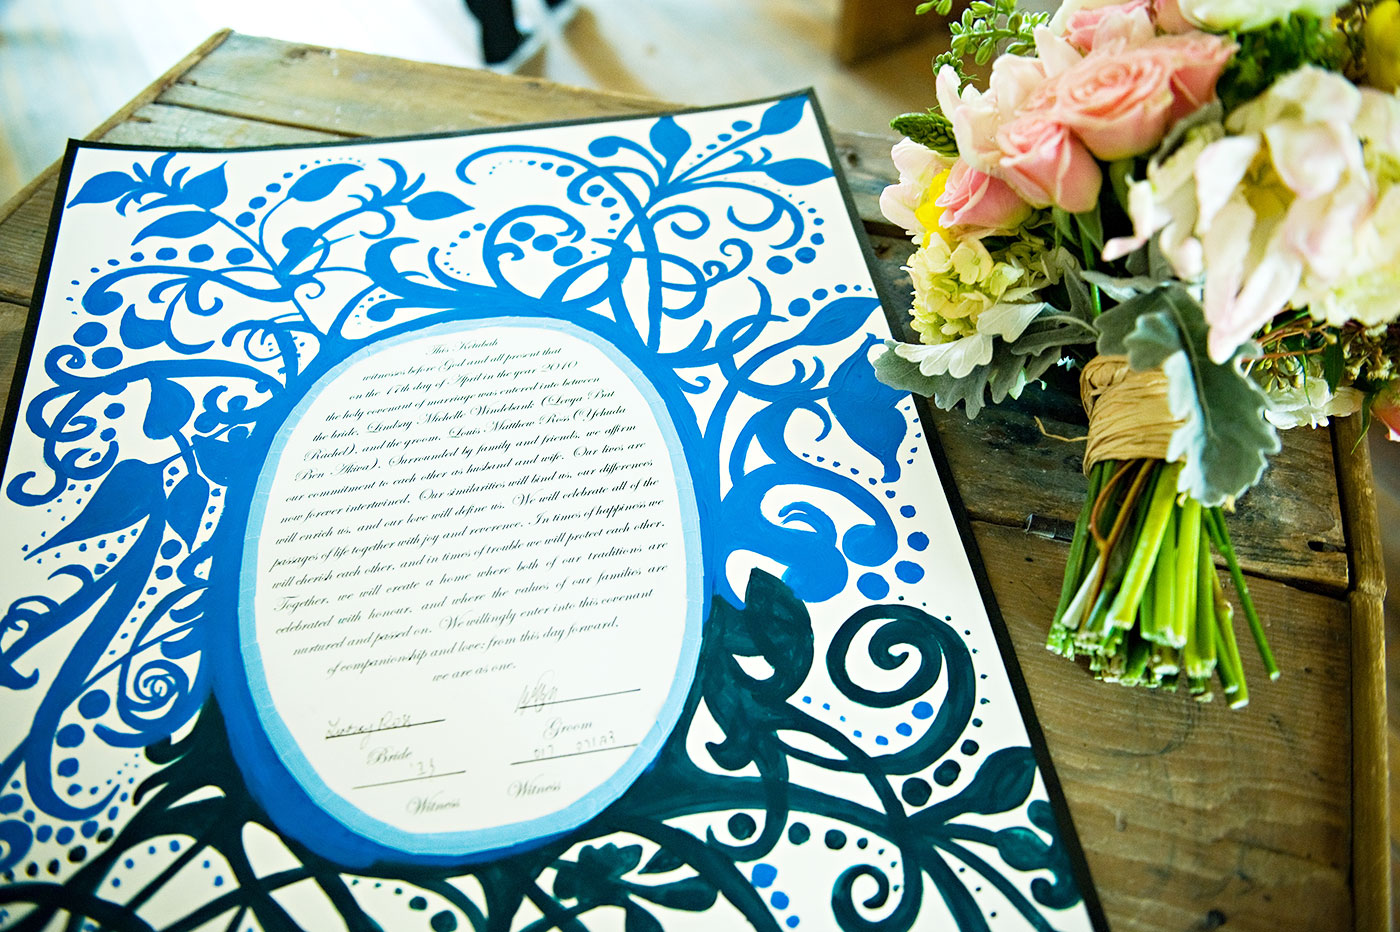 This Ketubah
witnesses before God and all present that
on the 17th day of April in the year 2010
the holy covenant of marriage was entered into between
the bride, Lindsay Michelle Windebank (Devya Bat
Rachel), and the groom, Louis Matthew Ross (Yehuda
Ben Akiva). Surrounded by family and friends, we affirm
our commitment to each other as husband and wife. Our lives are
now forever intertwined. Our similarities will bind us, our differences
will enrich us, and our love will define us. We will celebrate all of the
passages of life together with joy and reverence. In times of happiness we
will cherish each other, and in times of trouble we will protect each other.
Together, we will create a home where both of our traditions are
celebrated with honour, and where the values of our families are
nurtured and passed on. We willingly enter into this covenant
of companionship and love; from this day forward,
we are as one.
Bride
Groom
Witness
Witness